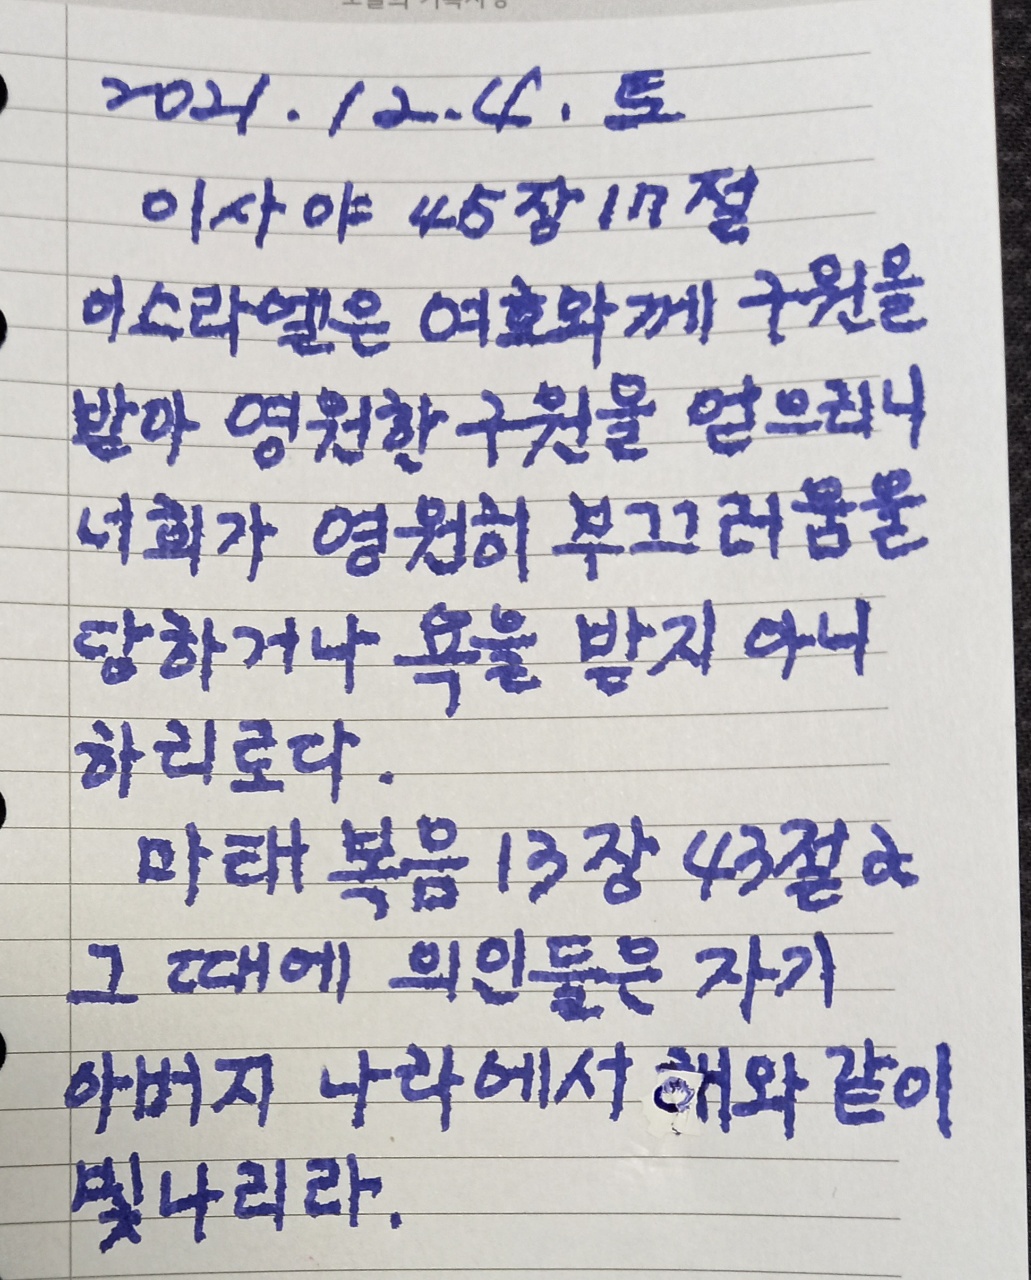 2021.12.4. 토
이사야 45장 17절
이스라엘은 여호와께 구원을
받아 영원한 구원을 얻으리니
너희가 영원히 부끄러움을
당하거나 욕을 받지 아니
하리로다.
마태복음 13장 43절a
그 때에 의인들은 자기
아버지 나라에서 해와 같이
빛나리라.